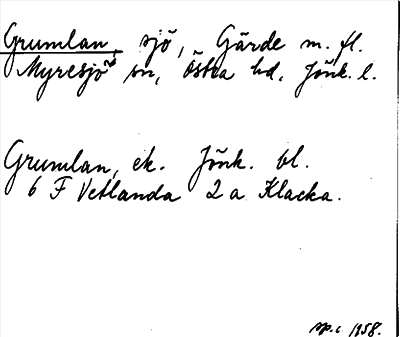 Grumlan, sjö, Gärde m. fl.
Myresjö sn, Östra hd, Jönk. l.
Grumlan, ek. Jönk. bl.
6 F Vetlanda 2 a Klacka.
sp.c 1958.